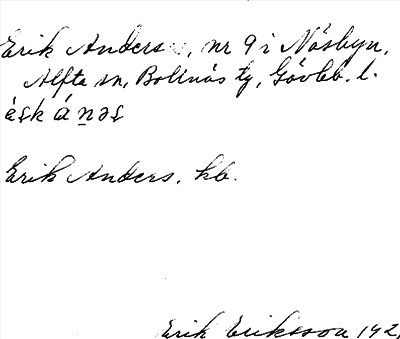 Erik Anders, nr 9 i Näsbyn,
Alfta sn, Bollnäs tg, Gävleb. l.
éşk áṉəş
Erik Anders, hb.
Erik Eriksson 192